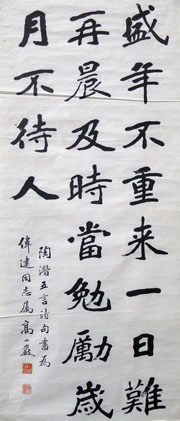 盛年不重来一日難
再晨及時當勉勵歲
月不待人
陶潛五言诗句書為
偉建同志属高一嚴